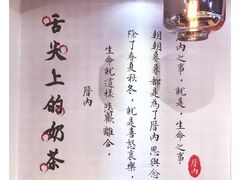 內之事，就是，生命之事
朝朝暮暮都是為了厝內思與念
除了春夏秋冬，就是喜怒哀樂，
生命就這樣悲歡離合，
厝內
舌尖上的奶茶
厝內